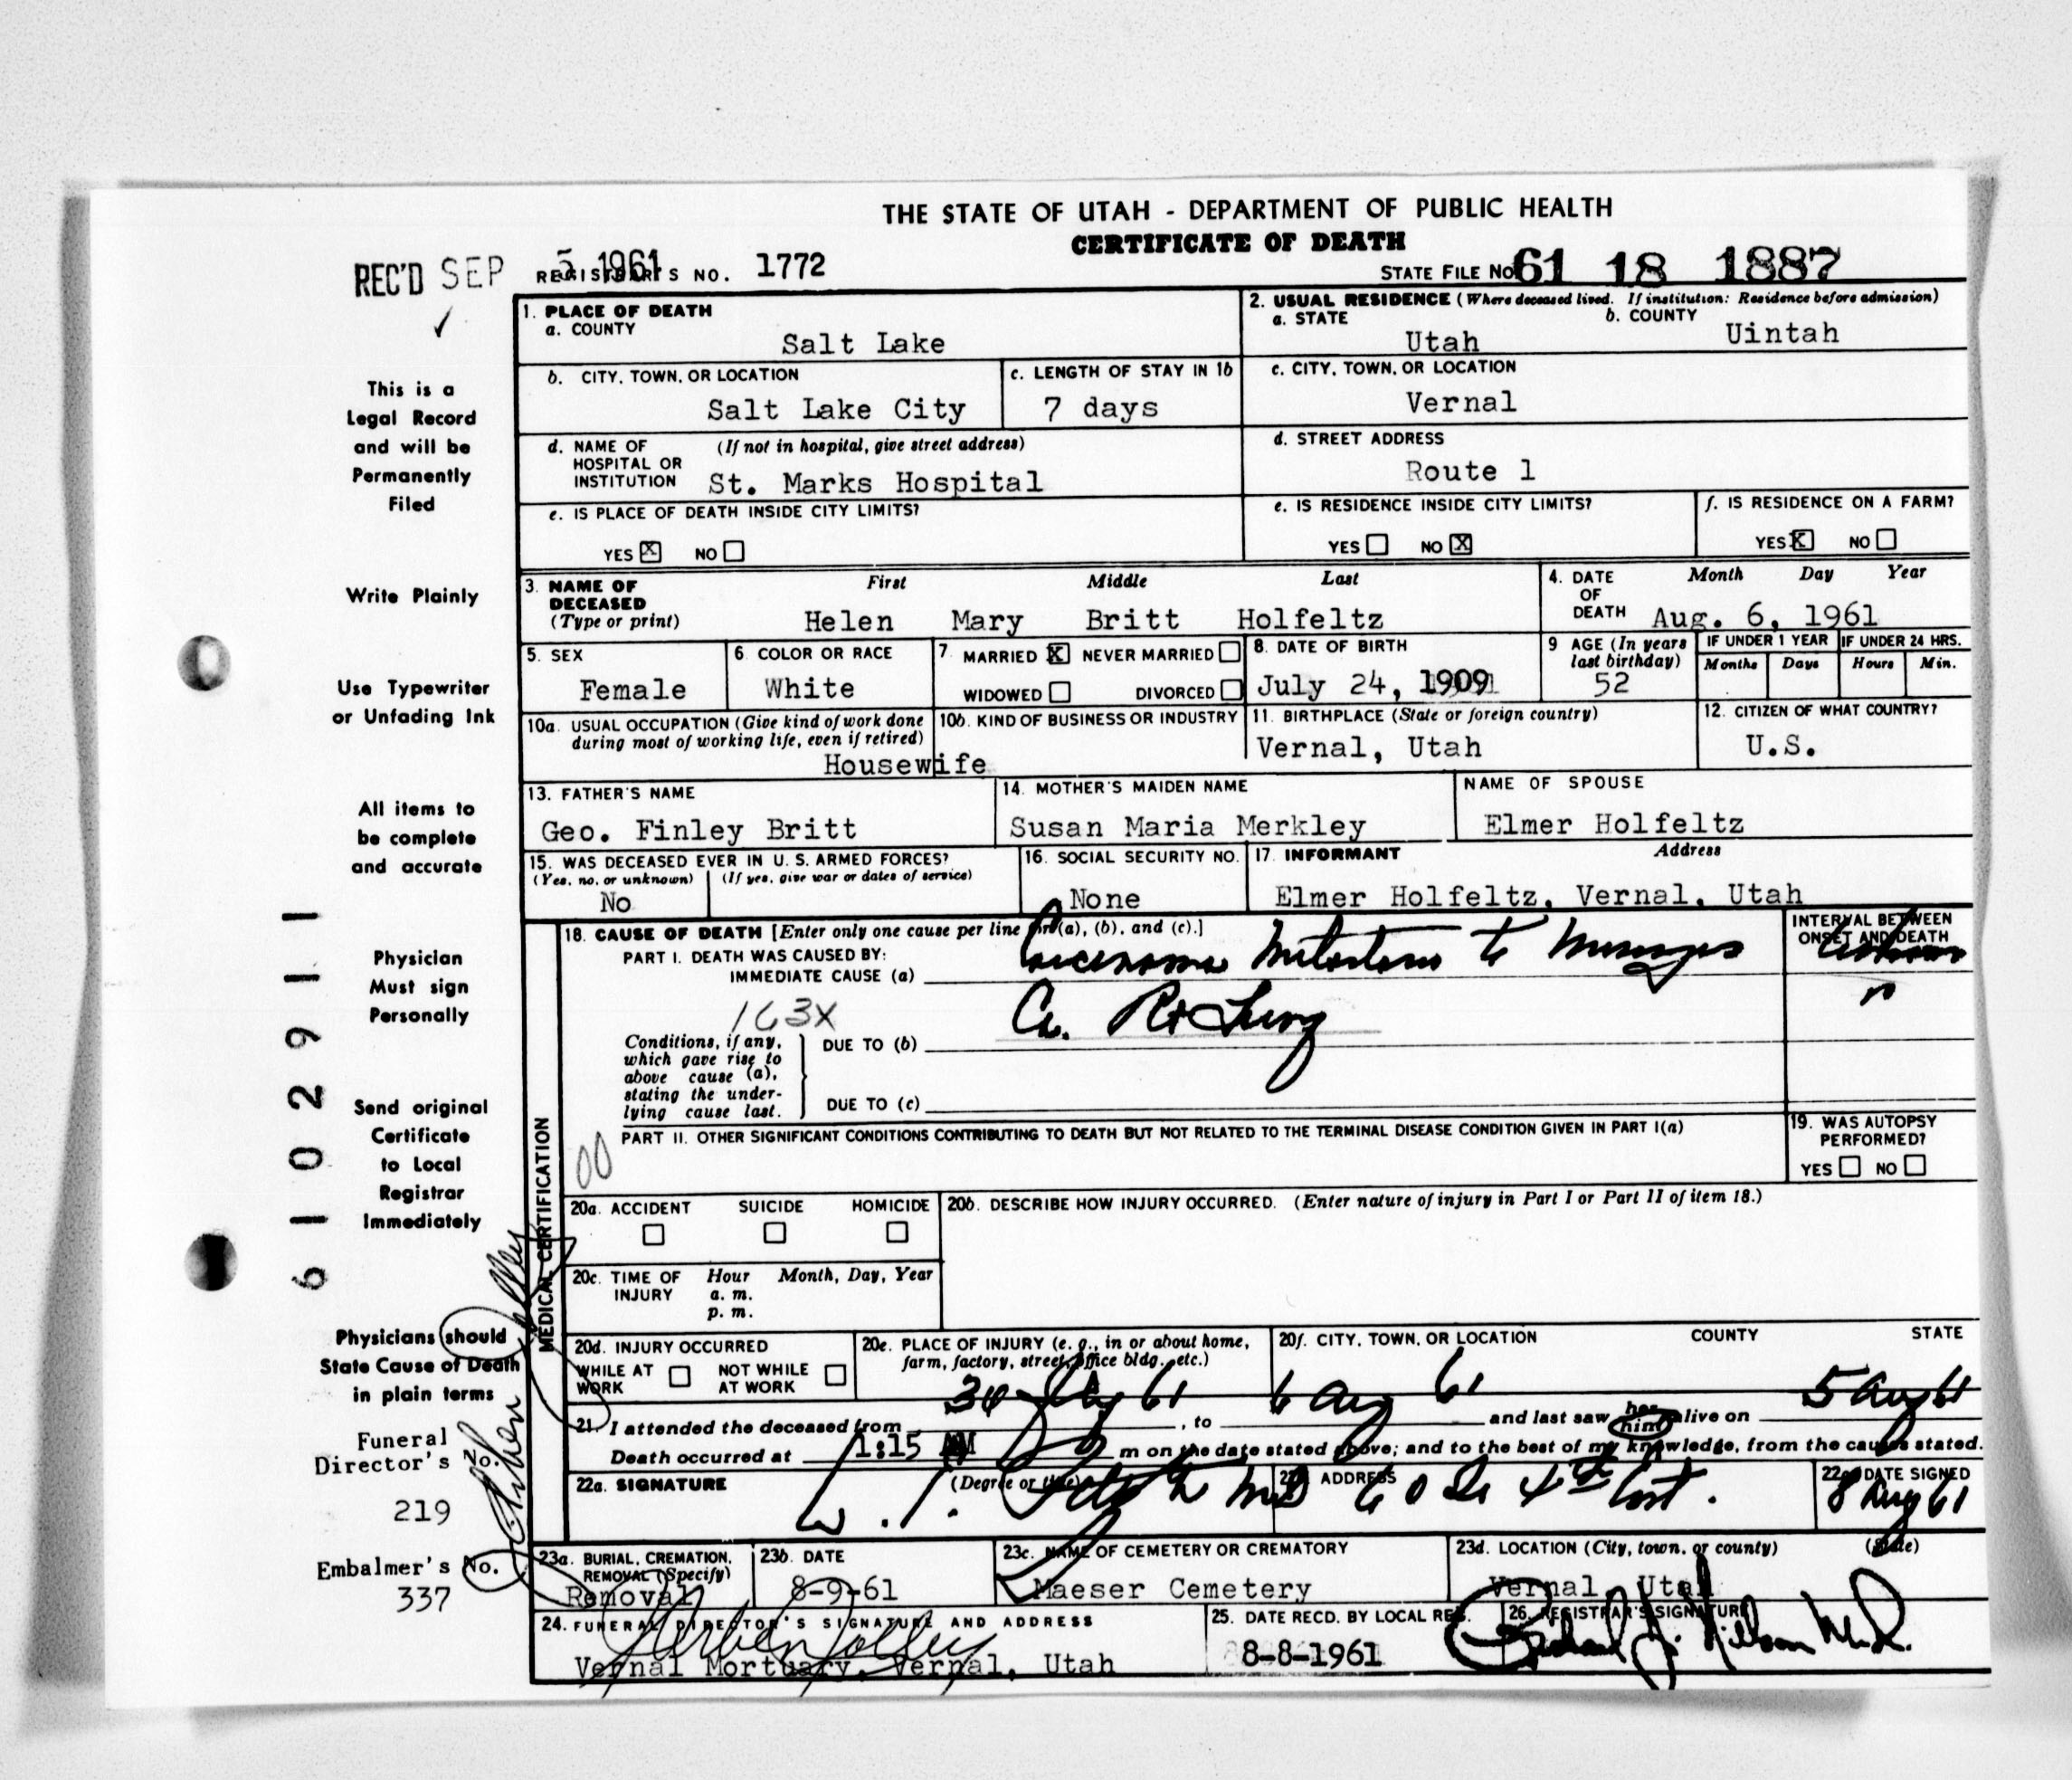 THE STATE OF UTAH - DEPARTMENT OF PUBLIC HEALTH
CERTIFICATE OF DEATH
REC'D SEP 5 1961 REGISTRAR'S NO. 1772 STATE FILE No 61 18 1887
This is a
Legal Record
and will be
Permanently
Filed
Write Plainly
Use Typewriter
or Unfading Ink
All items to
be complete
and accurate
Physician
Must sign
Personally
Send original
Certificate
to Local
Registrar
Immediately
Physicians should
State Cause of Death
in plain terms
Funeral
Director's No.
219
Embalmer's No.
337
6102911
1. PLACE OF DEATH
a. COUNTY
Salt Lake
2. USUAL RESIDENCE (Where deceased lived. If institution: Residence before admission)
a. STATE b. COUNTY
Utah Uintah
b. CITY, TOWN, OR LOCATION
Salt Lake City
c. LENGTH OF STAY IN 1b
7 days
c. CITY, TOWN, OR LOCATION
Vernal
d. NAME OF (If not in hospital, give street address)
HOSPITAL OR
INSTITUTION St. Marks Hospital
d. STREET ADDRESS
Route 1
e. IS PLACE OF DEATH INSIDE CITY LIMITS?
YES X NO
e. IS RESIDENCE INSIDE CITY LIMITS?
YES NO X
f. IS RESIDENCE ON A FARM?
YES X NO
3. NAME OF First Middle Last
DECEASED
(Type or print) Helen Mary Britt Holfeltz
4. DATE Month Day Year
OF
DEATH Aug. 6, 1961
5. SEX
Female
6. COLOR OR RACE
White
7. MARRIED X NEVER MARRIED
WIDOWED DIVORCED
8. DATE OF BIRTH
July 24, 1909
9 AGE (In years
last birthday)
52
IF UNDER 1 YEAR IF UNDER 24 HRS.
Months Days Hours Min.
10a. USUAL OCCUPATION (Give kind of work done
during most of working life, even if retired)
Housewife
10b. KIND OF BUSINESS OR INDUSTRY
11. BIRTHPLACE (State or foreign country)
Vernal, Utah
12. CITIZEN OF WHAT COUNTRY?
U.S.
13. FATHER'S NAME
Geo. Finley Britt
14. MOTHER'S MAIDEN NAME
Susan Maria Merkley
NAME OF SPOUSE
Elmer Holfeltz
15. WAS DECEASED EVER IN U. S. ARMED FORCES?
(Yes, no, or unknown) (If yes, give war or dates of service)
No
16. SOCIAL SECURITY NO.
None
17. INFORMANT Address
Elmer Holfeltz, Vernal, Utah
MEDICAL CERTIFICATION
18. CAUSE OF DEATH [Enter only one cause per line for (a), (b), and (c).]
PART I. DEATH WAS CAUSED BY:
IMMEDIATE CAUSE (a) Carcinoma to
INTERVAL BETWEEN
ONSET AND DEATH
163X
Conditions, if any,
which gave rise to
above cause (a),
stating the under-
lying cause last.
DUE TO (b) Ca. Rt Lung
DUE TO (c)
PART II. OTHER SIGNIFICANT CONDITIONS CONTRIBUTING TO DEATH BUT NOT RELATED TO THE TERMINAL DISEASE CONDITION GIVEN IN PART I(a)
00
19. WAS AUTOPSY
PERFORMED?
YES NO
20a. ACCIDENT SUICIDE HOMICIDE
20b. DESCRIBE HOW INJURY OCCURRED. (Enter nature of injury in Part I or Part II of item 18.)
20c. TIME OF Hour Month, Day, Year
INJURY a. m.
p. m.
20d. INJURY OCCURRED
WHILE AT NOT WHILE
WORK AT WORK
20e. PLACE OF INJURY (e. g., in or about home,
farm, factory, street, office bldg., etc.)
20f. CITY, TOWN, OR LOCATION COUNTY STATE
21. I attended the deceased from 30 July 61, to 6 Aug 61 and last saw her him alive on 5 Aug 61
Death occurred at 1:15 m on the date stated above; and to the best of my knowledge, from the causes stated.
22a. SIGNATURE (Degree or title) ADDRESS
W. MD
22c. DATE SIGNED
8 Aug 61
23a. BURIAL, CREMATION,
REMOVAL (Specify)
Removal
23b. DATE
8-9-61
23c. NAME OF CEMETERY OR CREMATORY
Maeser Cemetery
23d. LOCATION (City, town, or county) (State)
Vernal Utah
24. FUNERAL DIRECTOR'S SIGNATURE AND ADDRESS
Vernal Mortuary, Vernal, Utah
25. DATE RECD. BY LOCAL REG.
8-8-1961
26. REGISTRAR'S SIGNATURE